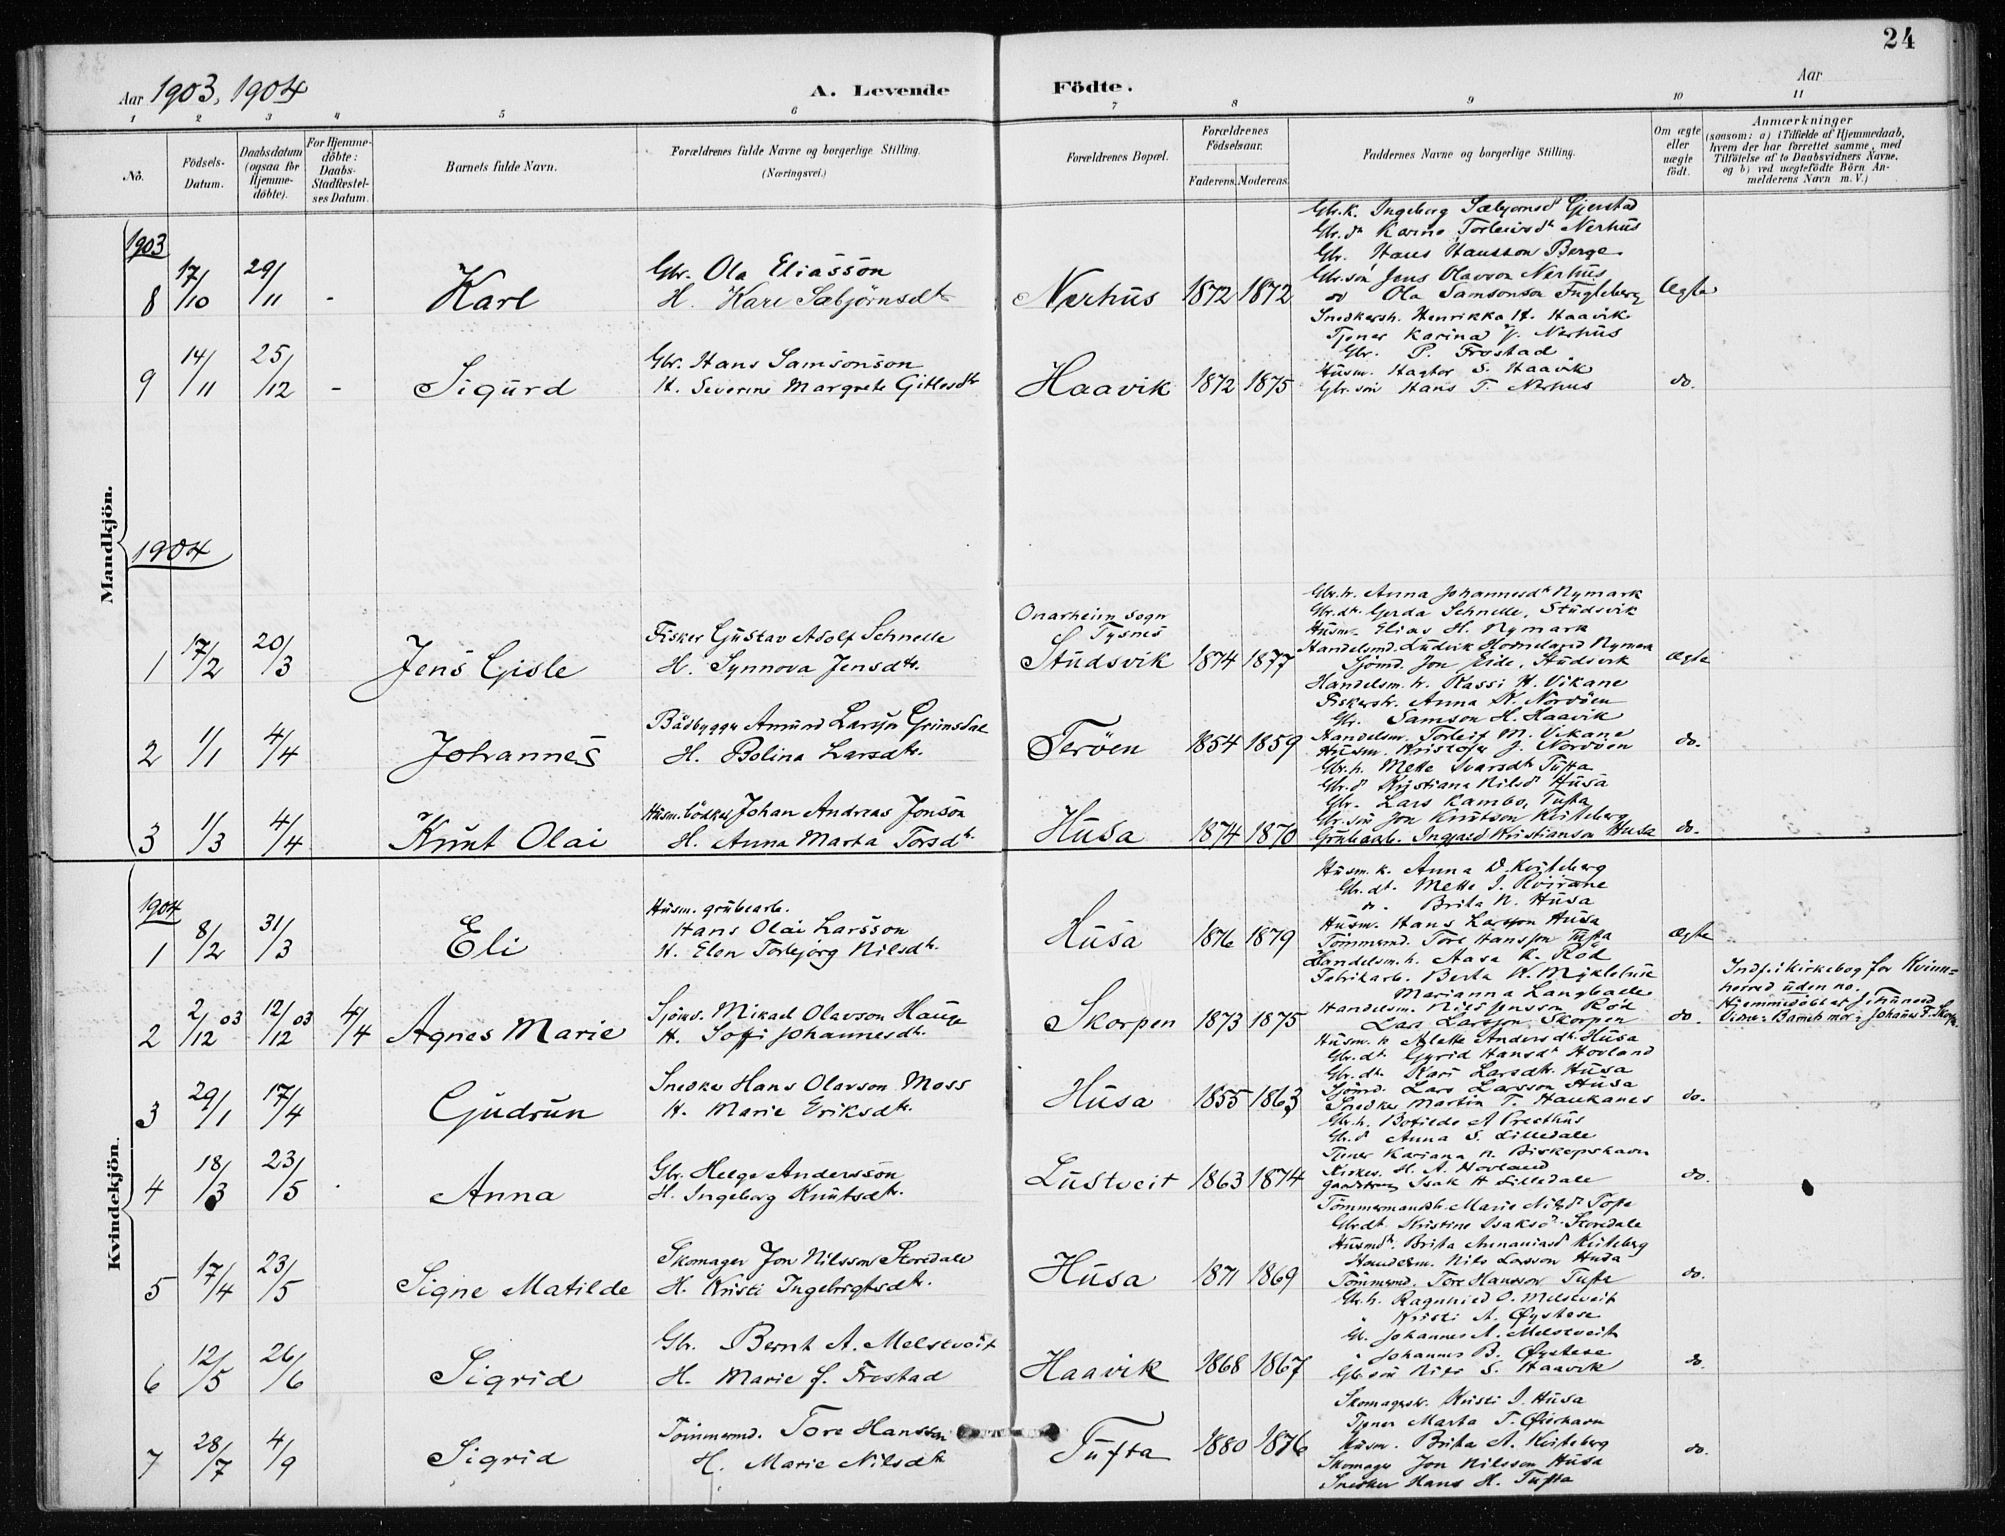 24
Aar 1903, 1904
A. Levende Födte.
Aar
1 2 3 4 5 6 7 8 9 10 11
No.
Födsels-
Datum.
Daabsdatum
(ogsaa for
Hjemme-
döbte).
For Hjemme-
döbte:
Daabs-
Stadfæstel-
ses Datum.
Barnets fulde Navn.
Forældrenes fulde Navne og borgerlige Stilling.
(Næringsvei.)
Forældrenes Bopæl.
Forældrenes
Födselsaar.
Faderens. Moderens.
Faddernes Navne og borgerlige Stilling.
Om ægte
eller
uægte
födt.
Anmærkninger
(saasom: a) i Tilfælde af Hjemmedaab,
hvem der har forrettet samme, med
Tilföielse af to Daabsvidners Navne,
og b) ved uægtefödte Börn An-
melderens Navn m. V.)
Mandkjön.
1903
8 17/10 29/11 - Karl
Gbr. Ola Eliasson
H. Kari Sæbjörnsdt
Nerhus 1872 1872
Gbr.k. Ingeborg Sæbjornsd Gjerstad
Gbr.dt Karine Torleivsdt Nerhus
Gbr. Hans Hansson Berge
Gbr.sön Jens Olavson Nerhus
Ola Samsonson Fugleberg
Ægte
9 14/11 25/12 - Sigurd
Gbr. Hans Samsonson
H. Severine Margrete Gitlesdtr
Haavik 1872 1875
Snedkerh. Henrikka H. Haavik
Tjener Karina J. Nerhus
Gbr. P. Frostad
Husm. Hagtor S. Haavik
Gbr.sön Hans T. Nerhus
do.
1904
1 17/2 20/3 Jens Gisle
Fisker Gustav Adolf Schnelle
H. Synnova Jensdtr.
Onarheim sogn
Tysnes
Studsvik 1874 1877
Gbr.h. Anna Johannesdtr Nymark
Gbr.dt. Gerda Schnelle, Studsvik
Husm. Elias H. Nymark
Sjömd. Jon Eide, Studsvik
ægte
2 1/1 4/4 Johannes
Bådbygger Amund Larssn Grimsdal
H. Bolina Larsdtr.
Teröen 1854 1859
Handelsm. h. Rassi H. Vikane
Fiskerh. Anna K. Nordöen
Gbr. Samson H. Haavik
Handelsm. Torleif M. Vikane
Husm. Kristofer J. Nordöen
do.
3 1/3 4/4 Knut Olai
Husm. bödker Johan Andreas Jonsön
H. Anna Marta Torsdt.
Husa 1874 1870
Gbr.h. Mette Ivarsdt Tufta
Gbr.d Kristiana Nilsd Husa
Gbr. Lars Rambo, Tufta
Gbr. sön Jon Knutson Kviteberg
Grubearb. Ingvald Kristianson Husa
do.
Kvindekjön.
1904
1 8/2 31/3 Eli
Husm. grubearb.
Hans Olai Larsson
H. Elen Torbjörg Nilsdt.
Husa 1876 1879
Husm. k. Anna D. Kviteberg
Gbr. dt. Mette J. Kvirane
Brita N. Husa
Husm. Hans Larsson Husa
Tömmermd. Tore Hansson Tufta
ægte
2 2/12 03 12/12 03 4/4 Agnes Marie
Sjöms. Mikael Olavson Hauge
H. Soffi Johannesdt.
Skorpen 1873 1875
Handelsm. h. Aasa L. Röd
Fabrikarb. Berta W. Myklebust
Marianna Langballe
Handelsm. Nils Jensson Röd
Lars Larsson Skorpen
do.
Indf. i Kirkebog for Kvinn=
herred uden no.
Hjemmedöbt af J. Thunold
Vidner: Barnets mor &
3 29/1 17/4 Gudrun
Snedker Hans Olavson Moss
H. Marie Eriksdtr.
Husa 1855 1863
Husm. k Alette Andersdt. Husa
Gbr. dt. Gyrid Hansdt Hovland
Gbr. dt. Kari Larsdt. Husa
Sjömd. Lars Larsson Husa
Snedker Martin T. Haukanes
do.
4 18/3 23/5 Anna
Gbr. Helge Andersson
H. Ingeborg Knutsdtr.
Lustveit 1863 1874
Gbr.h. Botilde A Presthus
Gbr.d Anna S. Lilledale
Tjener Kariana N. Biskopshavn
H. A. Hovland
Isak H Lilledale
do.
5 17/4 23/5 Signe Matilde
Skomager Jon Nilsson Storedale
H. Kristi Ingebrigtsdt.
Husa 1871 1869
Tömmermandsh. Marie Nilsdt Tofte
Gbr.dt. Kristine Isaksd. Storedale
Husmdt. Brita Annaniasd Kviteberg
Handelsm. Nils Larsson Husa
Tömmermd. Tore Hansson Tufta
do.
6 12/5 26/6 Sigrid
Gbr. Bernt A. Melstveit
H. Marie J. Frostad
Haavik 1868 1867
Gbr. h. Ragnhild O. Melstveit
Kristi A. Øystese
Gb. Johannes A. Melstveit
Johannes B. Øystese
Gbr. sön Nils S. Haavik
do.
7 28/7 4/9 Sigrid
Tömmermd. Tore Hansson
H. Marie Nilsdt
Tufta 1880 1876
Skomagerk. Kristi I. Husa
Tjener Marta T.
Husm. Brita A. Kviteberg
Skomager Jon Nilsson Husa
Snedker Hans H. Tufta
do.